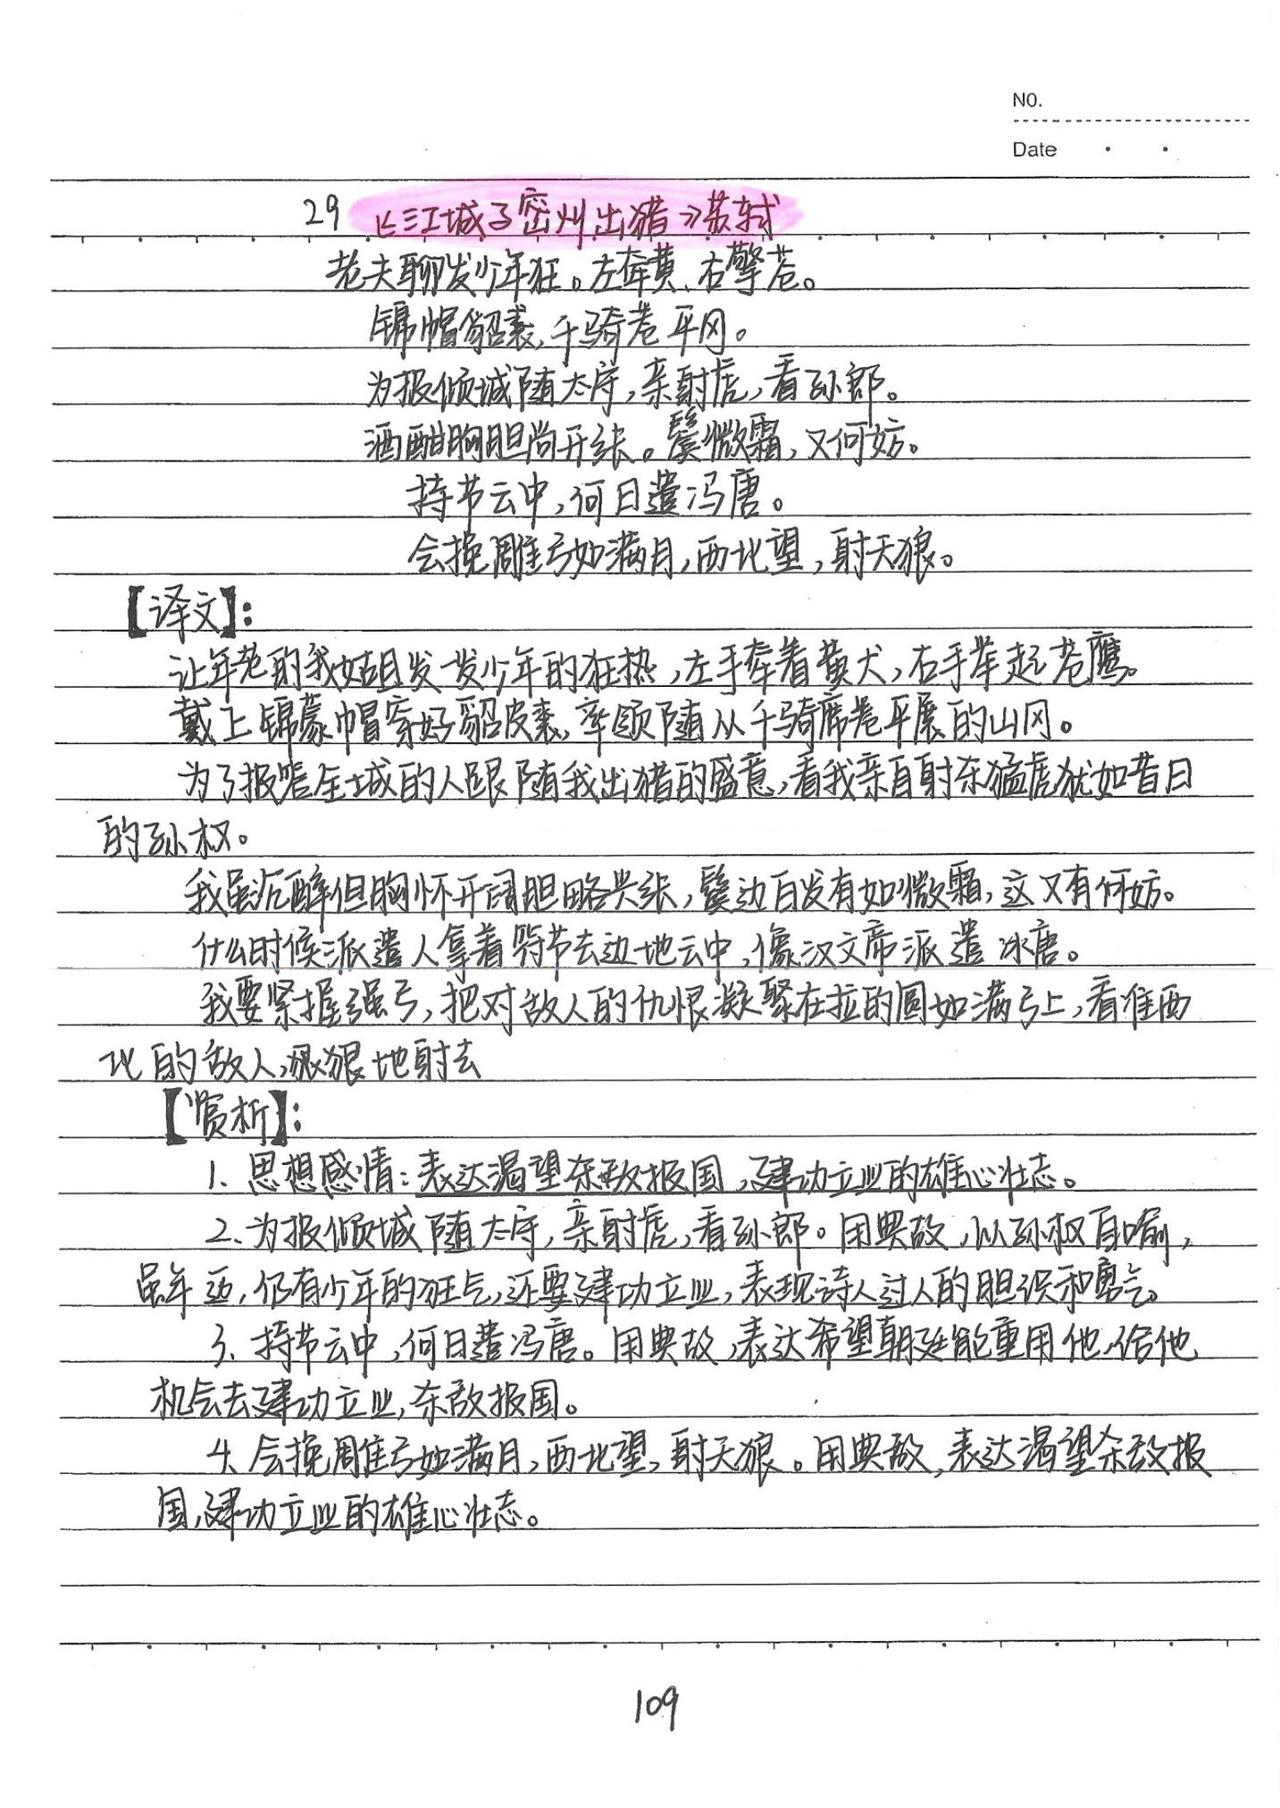 NO.
Date
29 《江城子密州出猎》苏轼
老夫聊发少年狂。左牵黄、右擎苍。
锦帽貂裘,千骑卷平冈。
为报倾城随太守,亲射虎,看孙郎。
酒酣胸胆尚开张。鬓微霜,又何妨。
持节云中,何日遣冯唐。
会挽雕弓如满月,西北望,射天狼。
【译文】:
让年老的我姑且发一发少年的狂热,左手牵着黄犬,右手举起苍鹰。
戴上锦蒙帽穿好貂皮裘,率领随从千骑席卷平展的山冈。
为了报答全城的人跟随我出猎的盛意,看我亲自射杀猛虎犹如昔日
的孙权。
我虽沉醉但胸怀开阔胆略兴张,鬓边白发有如微霜,这又有何妨。
什么时候派遣人拿着符节去边地云中,像汉文帝派遣冰唐。
我要紧握强弓,把对敌人的仇恨凝聚在拉的圆如满弓上,看准西
北的敌人,狠狠地射去
【赏析】:
1. 思想感情:表达渴望杀敌报国,建功立业的雄心壮志。
2、为报倾城随太守,亲射虎,看孙郎。用典故,以孙权自喻,
虽年迈,仍有少年的狂气,还要建功立业,表现诗人过人的胆识和勇气。
3、持节云中,何日遣冯唐。用典故,表达希望朝廷能重用他,给他
机会去建功立业,杀敌报国。
4、会挽雕弓如满月,西北望,射天狼。用典故,表达渴望杀敌报
国,建功立业的雄心壮志。
109